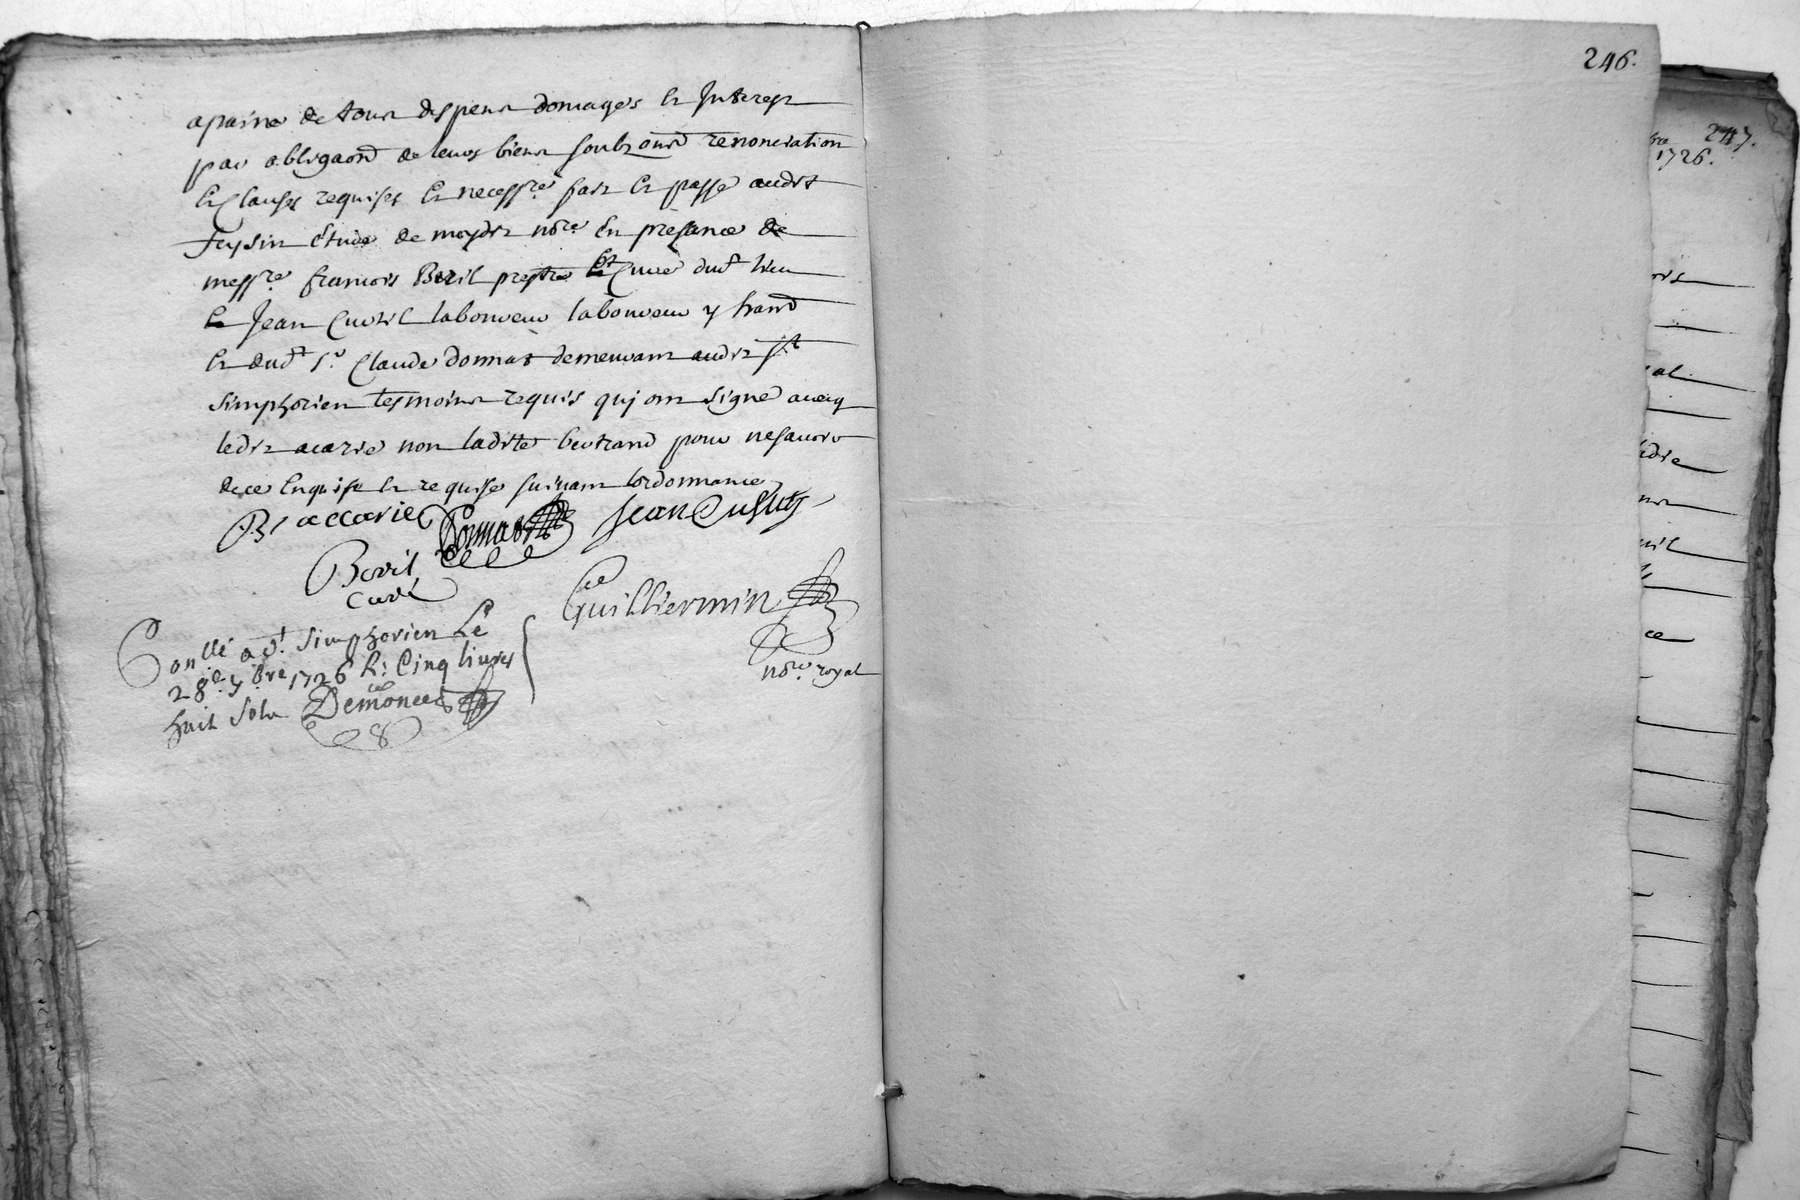 apaine de tous despens domages et Interest
par obligaon de leurs biens soubz ond renonciation
et Clauses requises et necess.res fait et passé audit
feysin étude de moydit no.re En presance de
mess.re francois Boril prestre et Curé dud lieu
et Jean labonreur labonreur y hand
et dud s.r Claude donnat demeurant audit st
simphorien tesmoins requis qui ont signé avecq
ledit acarie non ladite bertrand pour ne savoir
dece Enquise et requise suivant lordonnance
B accarie Donnat Jean
Boril
curé
Guilliermin
no.re royal
Con.llé a St. simphorien Le
28e 7bre 1726 R: Cinq livres
huit sols Demoncel
246.
247.
1726.